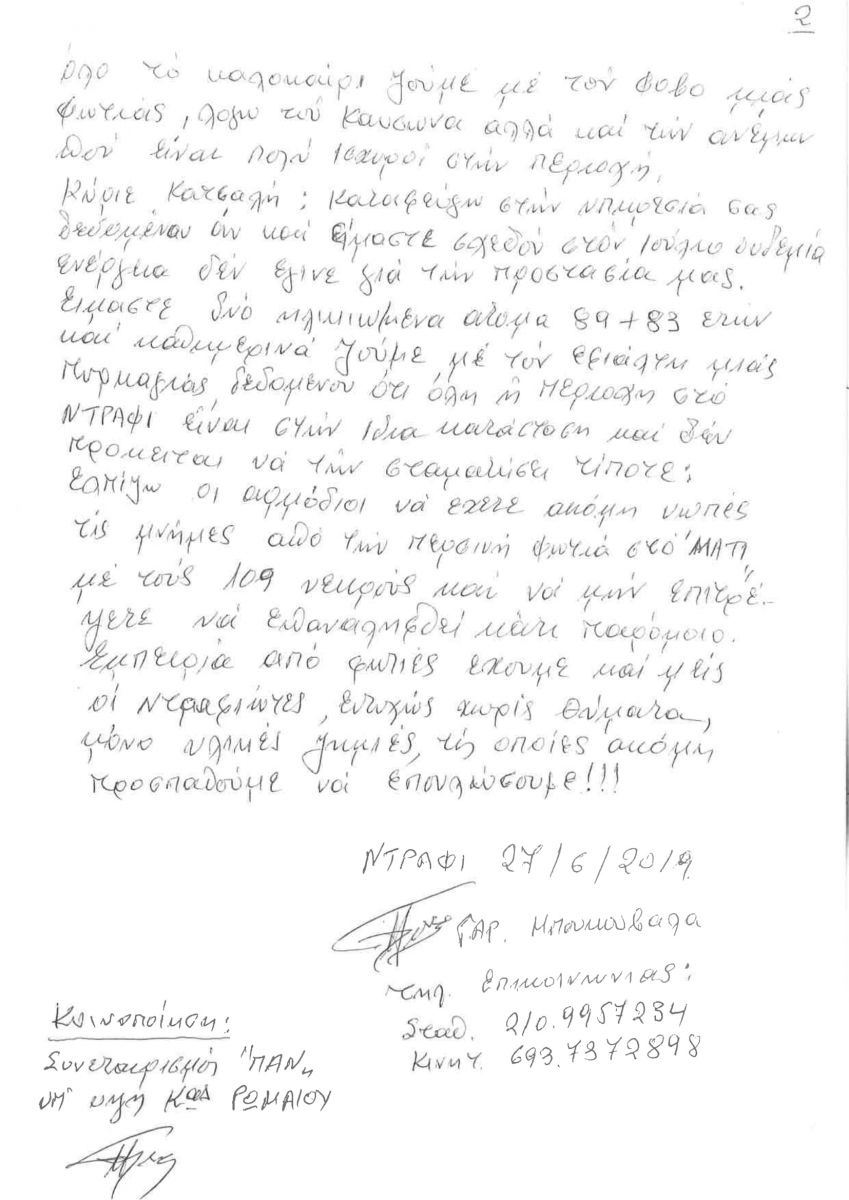 2
όλο τό καλοκαίρι ζούμε μέ τόν φοβο μιάς
φωτιάς, λογω τού καυσωνα αλλά καί τών ανέμων
πού είναι πολύ ισχυροί στήν περιοχή.
Κύριε Κατσαλή: καταφεύγω στήν υπηρεσιά σας
δεδομένου άν καί είμαστε σχεδόν στόν Ιούλιο ουδεμία
ενέργεια δέν έγινε γιά τήν προστασία μας.
Είμαστε δυό ηλικιωμένα ατομα 89+83 ετών
καί καθημερινά ζούμε, μέ τόν εφιάλτη μιάς
πυρκαγιάς, δεδομένου ότι όλη ή περιοχη στό
ΝΤΡΑΦΙ είναι στήν ιδια κατάσταση καί δέν
προκειται νά τήν σταματήσει τίποτε:
Ελπίζω οι αρμόδιοι νά έχετε ακόμη νωπές
τίς μνήμες από τήν περσινή φωτιά στό "ΜΑΤΙ"
μέ τούς 109 νεκρούς καί νά μήν επιτρέ-
ψετε νά επαναληφθεί κάτι παρόμοιο.
Εμπειρία από φωτιές έχουμε καί μείς
οί Ντραφιώτες, ευτυχώς χωρίς θύματα,
μόνο υλικές ζημιές, τίς οποίες ακόμη
προσπαθούμε νά επουλώσουμε!!!
ΝΤΡΑΦΙ 27/6/2019
ΓΑΡ. Μπουκουβαλα
τηλ. Επικοινωνιας:
Σταθ. 210.9957234
Κινητ. 693.7372898
Κοινοποίηση:
Συνεταιρισμός "ΠΑΝ"
υπ' οψη Κας ΡΩΜΑΙΟΥ